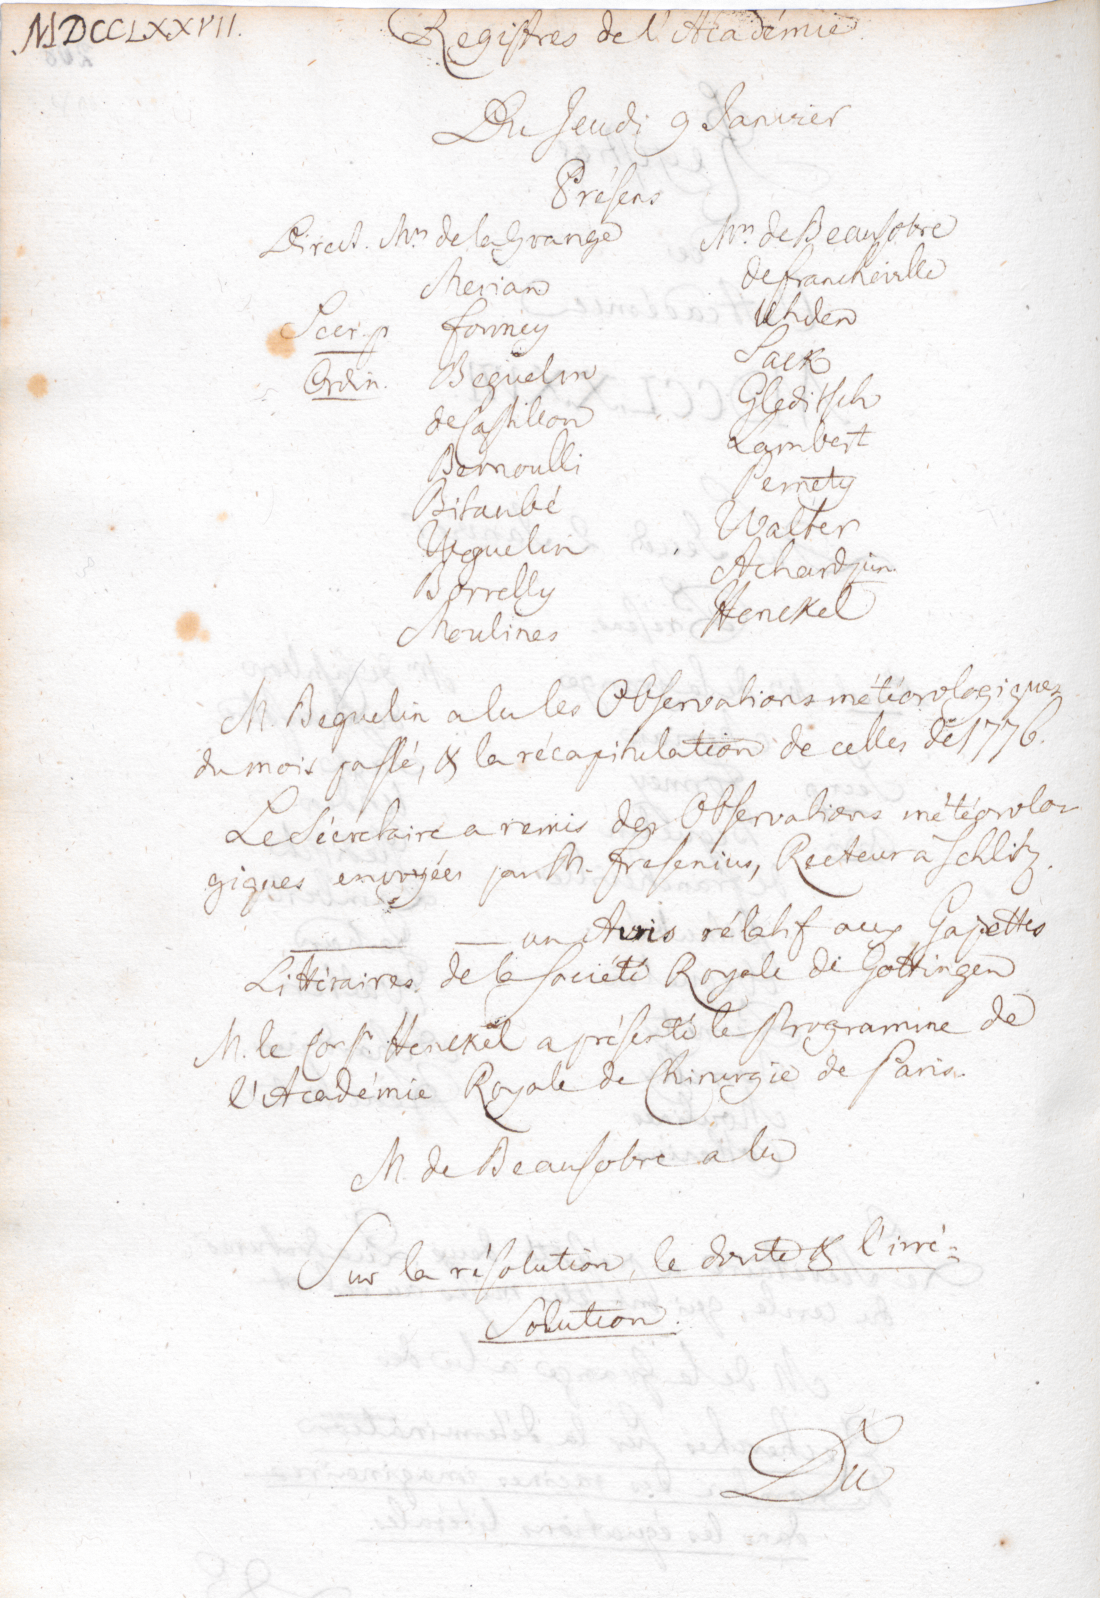 MDCCLXXVII. Registres de l'Académie.
Du Jeudi 9 Janvier
Présens
Direct. Mrs de la Grange
Merian
Secr. p Formey
Ordin. Beguelin
de Castillon
Bernoulli
Bitaubé
Weguelin
Borrelly
Moulines
Mrs de Beausobre
de Francheville
Uhden
Sack
Gleditsch
Lambert
Pernety
Walter
Achard jun.
Henckel
M. Beguelin a lu les Observations météorologiques
du mois passé, & la récapitulation de celles de 1776.
Le Sécretaire a remis des Observations météorolo-
giques envoyées par M. Fresenius, Recteur à Schlitz.
un Avis rélatif aux Gazettes
Littéraires de la Société Royale de Gottingen
M. le Cons Henckel a présenté le Programme de
l'Académie Royale de Chirurgie de Paris.
M. de Beausobre a lu
Sur la résolution, le doute & l'irré=
solution.
Du